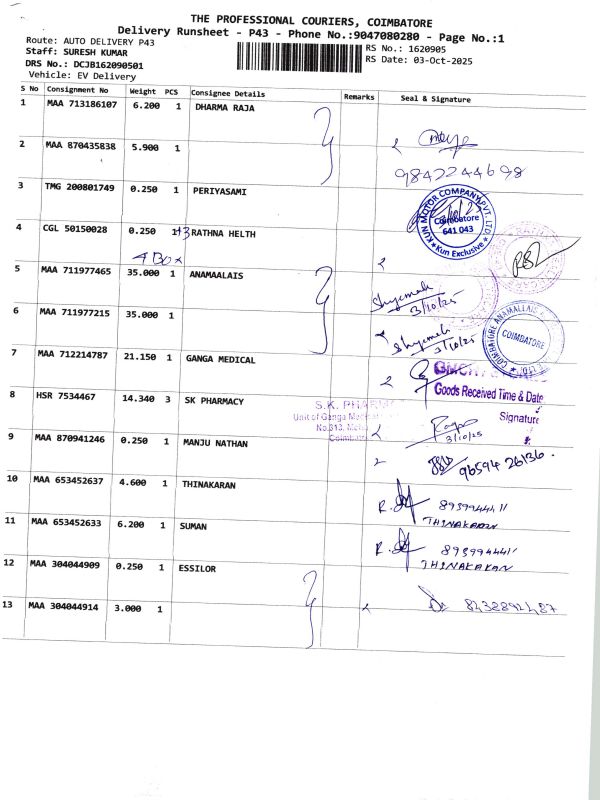 THE PROFESSIONAL COURIERS, COIMBATORE
Delivery Runsheet - P43 - Phone No.:9047080280 - Page No.:1
Route: AUTO DELIVERY P43
Staff: SURESH KUMAR
DRS No.: DCJB162090501
Vehicle: EV Delivery
RS No.: 1620905
RS Date: 03-Oct-2025
S No Consignment No Weight PCS Consignee Details Remarks Seal & Signature
1 MAA 713186107 6.200 1 DHARMA RAJA
2 MAA 870435838 5.900 1
9842244698
3 TMG 200801749 0.250 1 PERIYASAMI
KUN MOTOR COMPANY PVT. LTD.
Coimbatore
641 043
* Kun Exclusive *
4 CGL 50150028 0.250 1 +3 RATHNA HELTH
4 Box
5 MAA 711977465 35.000 1 ANAMAALAIS
Shyamala
3/10/25
6 MAA 711977215 35.000 1
Shyamala
3/10/25
COIMBATORE ANAMALLAIS
COIMBATORE
7 MAA 712214787 21.150 1 GANGA MEDICAL
Goods Received Time & Date
Signature
8 HSR 7534467 14.340 3 SK PHARMACY
S.K. PHARM
Unit of Ganga Medical
No.313,
Coimbatore
3/10/25
9 MAA 870941246 0.250 1 MANJU NATHAN
96594 26136.
10 MAA 653452637 4.600 1 THINAKARAN
8939944411
THINAKARAN
11 MAA 653452633 6.200 1 SUMAN
8939944411
THINAKARAN
12 MAA 304044909 0.250 1 ESSILOR
13 MAA 304044914 3.000 1
8438892487